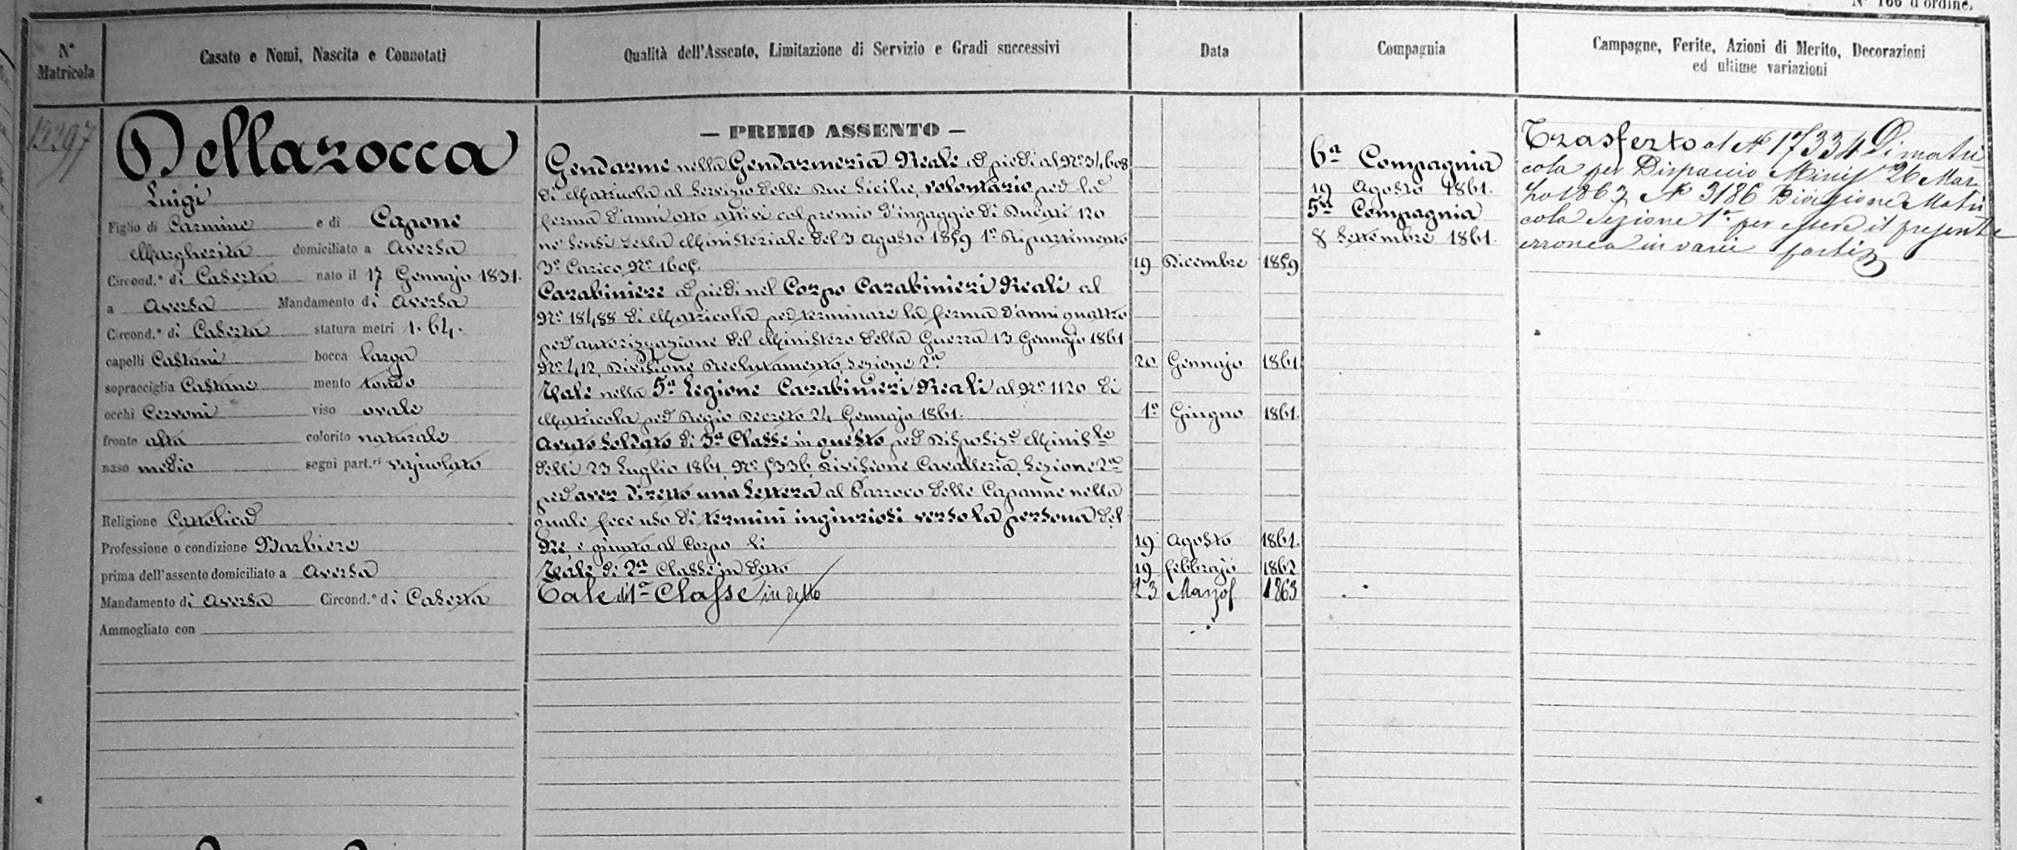 N° 166 d'ordine.
N° Matricola
Casato e Nomi, Nascita e Connotati
Qualità dell'Assento, Limitazione di Servizio e Gradi successivi
Data
Compagnia
Campagne, Ferite, Azioni di Merito, Decorazioni
ed ultime variazioni
13297
Dellarocca
Luigi
Figlio di Carmine e di Capone
Margherita domiciliato a Aversa
Circond.° di Caserta nato il 17 Gennajo 1831.
a Aversa Mandamento di Aversa
Circond.° di Caserta statura metri 1. 64.
capelli Castani bocca larga
sopracciglia Castane mento tondo
occhi Cervoni viso ovale
fronte alta colorito naturale
naso medio segni part.ri vajuolato
Religione Cattolica
Professione o condizione Barbiere
prima dell'assento domiciliato a Aversa
Mandamento di Aversa Circond.° di Caserta
Ammogliato con
— PRIMO ASSENTO —
Gendarme nella Gendarmeria Reale a piedi al N.° 34608
di Matricola al Servizio delle Due Sicilie, volontario per la
ferma d'anni otto attivi col premio d'ingaggio di Ducati 120
ne sensi della Ministeriale del 3 Agosto 1859 1.° Ripartimento
3.° Carico N.° 1605. 19 Dicembre 1859
Carabiniere a piedi nel Corpo Carabinieri Reali al
N.° 18488 di Matricola per terminare la ferma d'anni quattro
per autorizzazione del Ministero della Guerra 13 Gennajo 1861
N.° 412, Divisione Reclutamento, Sezione 2.a 20 Gennajo 1861
Tale nella 5.a Legione Carabinieri Reali al N.° 1120 di
Matricola per Regio Decreto 24 Gennajo 1861. 1.° Giugno 1861.
Avuto Soldato di 3.a Classe in questo per Disposiz.e Minis.le
delli 23 Luglio 1861, N.° 5336 Divisione Cavalleria, Sezione 2.a
per aver diretto una lettera al Parroco delle Capanne nella
quale fece uso di termini inginriosi verso la persona del
Re, e giunto al Corpo li 19 Agosto 1861.
Tale di 2.a Classe in detto 19 febbrajo 1862
Tale di 1.a Classe in detto 23 Marzo 1863
6.a Compagnia
19 Agosto 1861.
5.a Compagnia
8 Settembre 1861.
Trasferto al N° 17334 Di matri
cola per Dispaccio Minis.e 26 Mar
zo 1863 N° 3186 Divisione Matri
cola Sezione 1.a per essere il presente
erroneo in varie parti